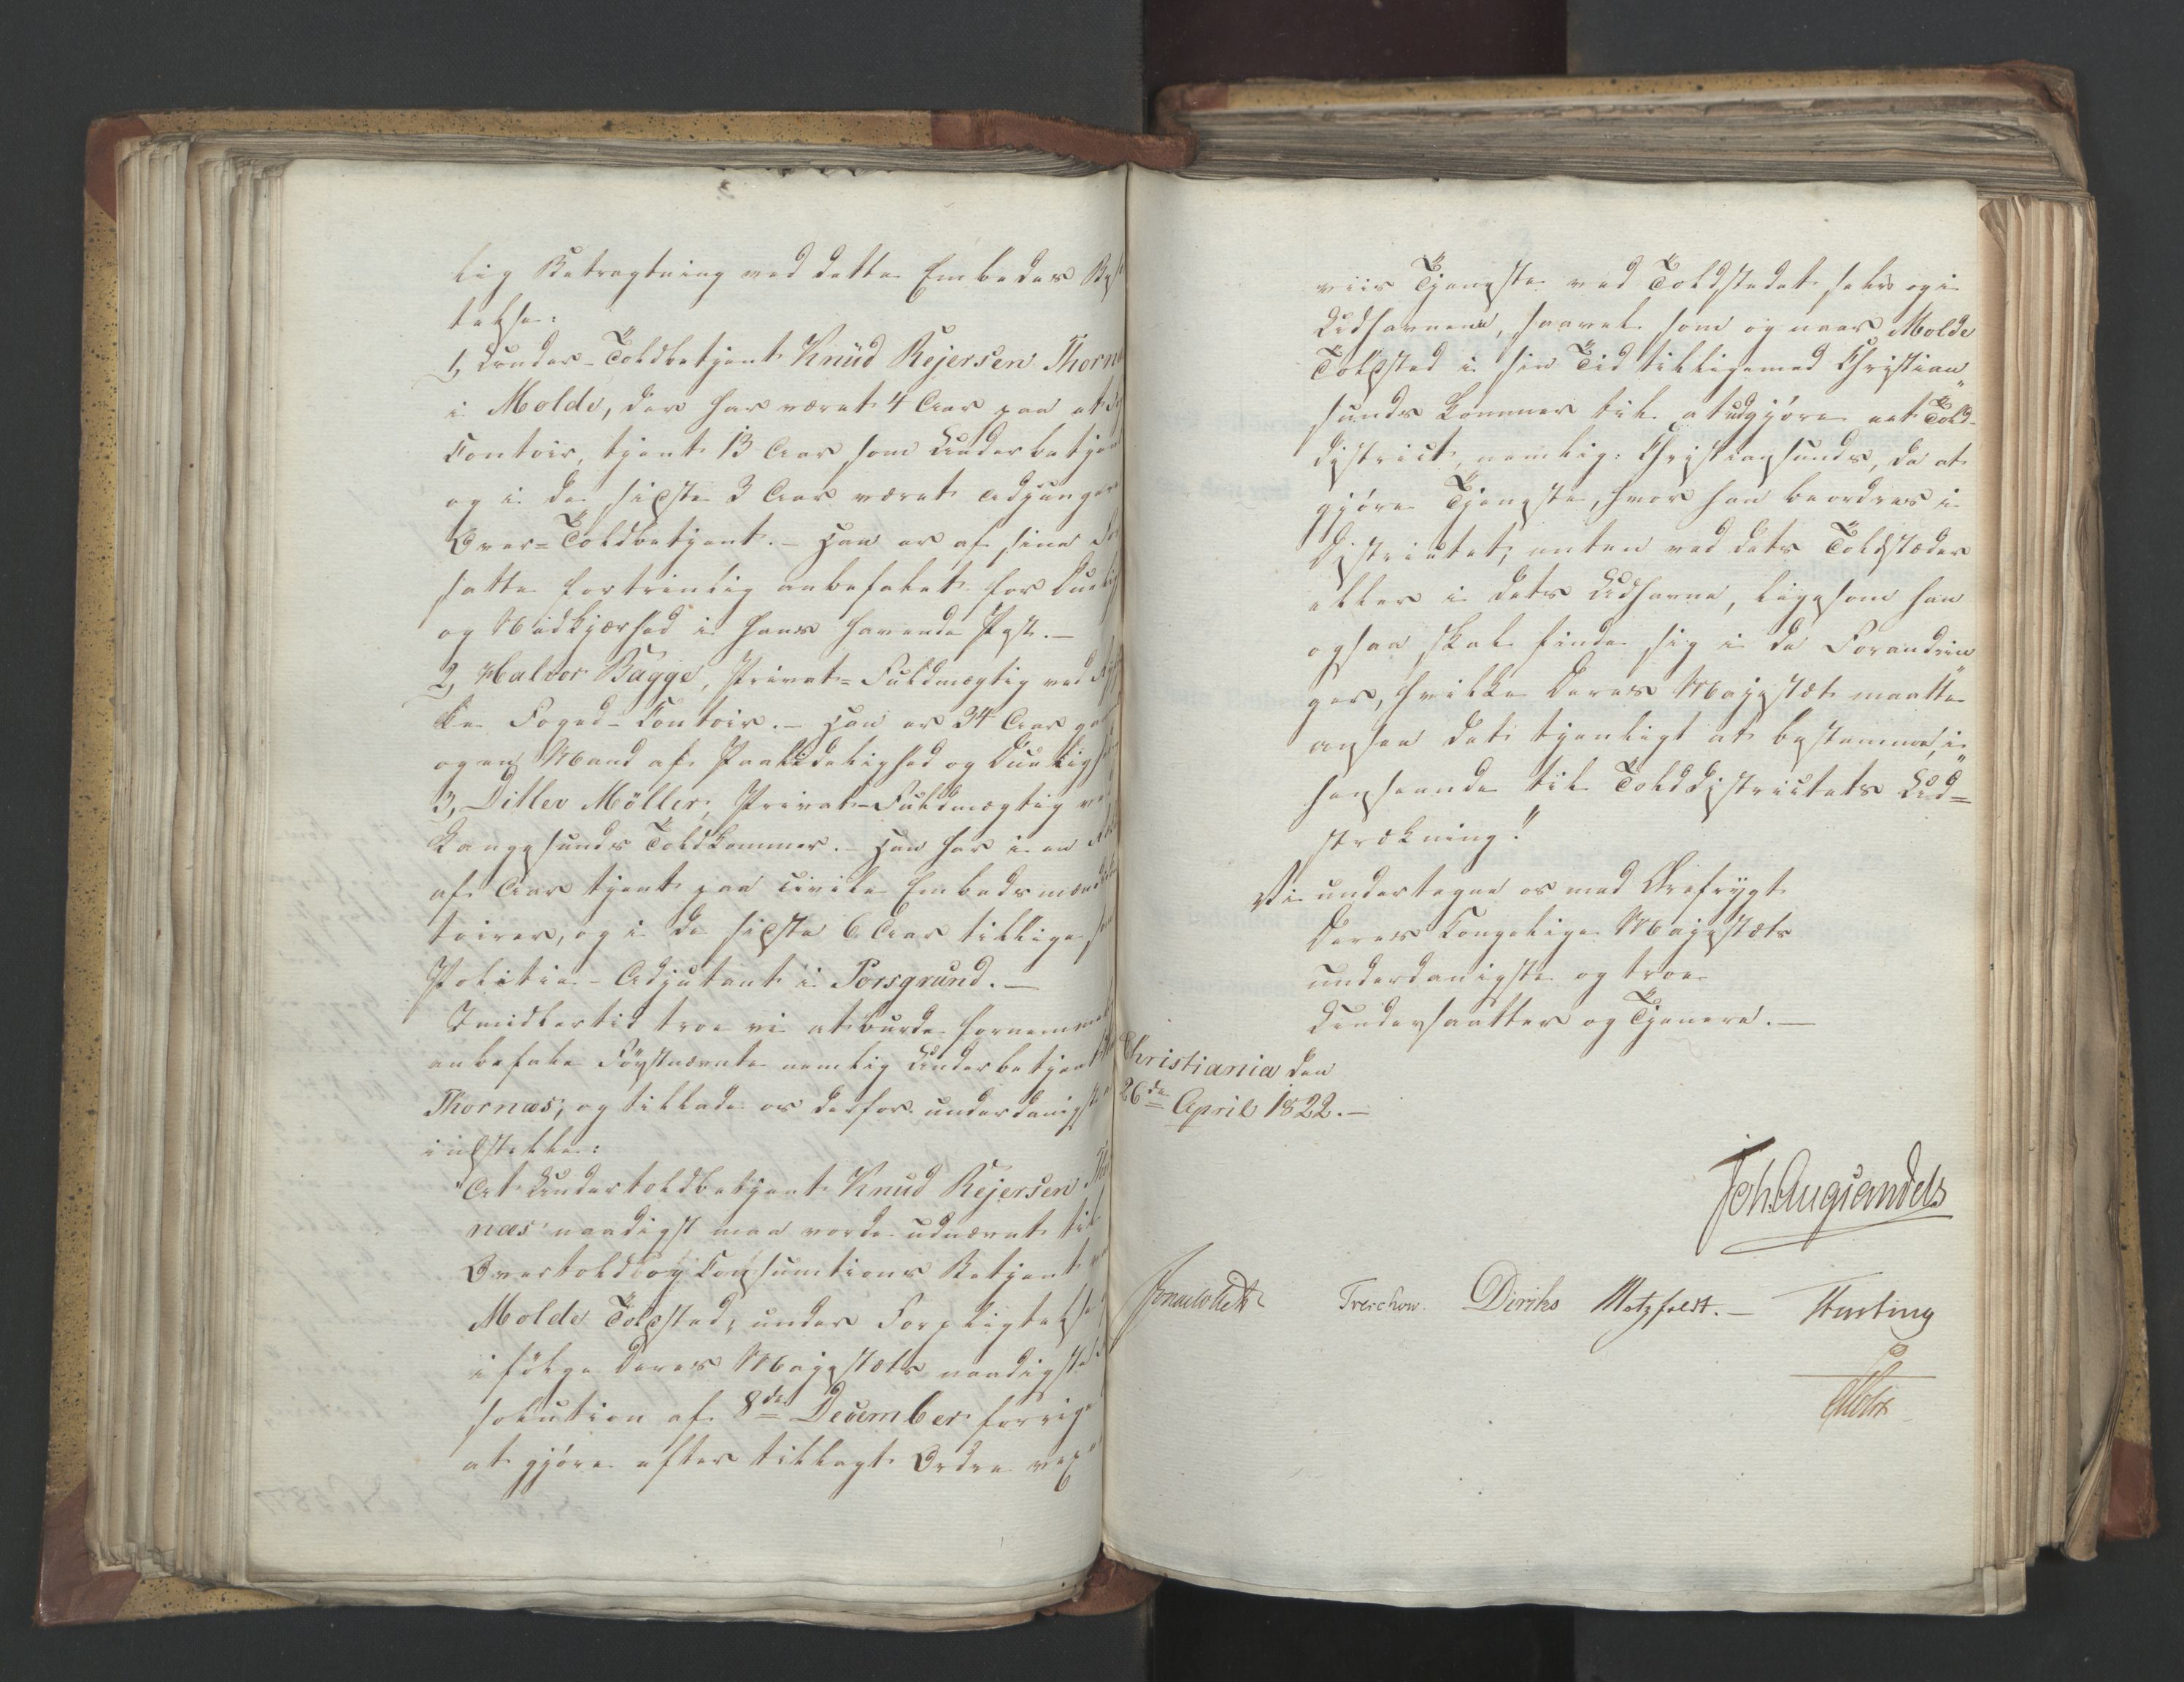 lig Betragtning ved dette Embedes Be
telse:
1, Under-Toldbetjent Knud Rejersen Thorn
i Molde, der har været 4 Aar paa et
Contoir, tjent 13 Aar som Underbetjent
og i de sidste 3 Aar været adjungeret
Over-Toldbetjent. - Han er af sine For
satte fortrinlig anbefalet for Duelig
og Nidkjærhed i hans havende Post. -
2, Halvor Bagge, Privat-Fuldmægtig ved
ke Foged-Contoir. - Han er 34 Aar ga
og en Mand af Paalidelighed og Duelighed
3, Ditlev Möller, Privat-Fuldmægtig ved
Langesunds Toldkammer. - Han har i en
af Aar tjent paa civile Embedsmænds
toirer, og i de sidste 6 Aar tillige som
Politie-Adjutant i Porsgrund. -
Imidlertid troe vi at burde fornemmel
anbefale Førstnævnte nemlig Underbetjent
Thornæs, og tillade os derfor underdanigst
indstille:
"At Undertoldbetjent Knud Rejersen Tho
næs naadigst maa vorde udnævnt til
Overtold og Consumtions Betjent ved
Molde Toldsted, under Forpligtelse
ifölge Deres Majestæts naadigste
solution af 8de December forrige
at gjöre efter tillagt Ordre vex
viis Tjeneste ved Toldstedet selv og i
Udhavnene, saavel som og naar Molde
Toldsted i sin Tid tilligemed Christian
sunds kommer til at udgjöre eet Told-
district, nemlig: Christiansunds, da at
gjöre Tjeneste, hvor han beordres i
Districtet, enten ved dets Toldstæder
eller i dets Udhavne, ligesom han
ogsaa skal finde sig i de Forandrin
ger, hvilke Deres Majestæt maatte
ansee det tjenligt at bestemme, i
henseende til Tolddistrictets Ud=
strækning."
Vi undertegne os med Ærefrygt
Deres Kongelige Majestæts
underdanigste og troe
Undersaatter og Tjenere. -
Christiania den
26de April 1822. -
Joh. Aug. Sandels
Sommerhielm Treschow. Diriks Motzfeldt. - Fasting
Holst